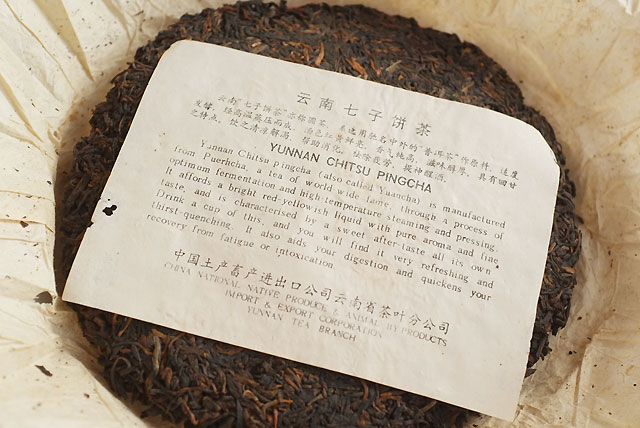 云南七子饼茶
云南"七子饼茶"亦称圆茶，系选用驰名中外的"普洱茶"作原料，适度
发酵，经高温蒸压而成，汤色红黄鲜亮，香气纯高，滋味醇厚，具有回甘
之特点，饮之清凉解渴，帮助消化，祛除疲劳，提神醒酒。
YUNNAN CHITSU PINGCHA
Yunnan Chitsu pingcha (also called Yuancha) is manufactured
from Puerhcha, a tea of world wide fame, through a process of
optimum fermentation and high temperature steaming and pressing.
It affords a bright red-yellowish liquid with pure aroma and fine
taste, and is characterised by a sweet after-taste all its own.
Drink a cup of this, and you will find it very refreshing and
thirst-quenching. It also aids your digestion and quickens your
recovery from fatigue or intoxication.
中国土产畜产进出口公司云南省茶叶分公司
CHINA NATIONAL NATIVE PRODUCE & ANIMAL BY-PRODUCTS
IMPORT & EXPORT CORPORATION
YUNNAN TEA BRANCH